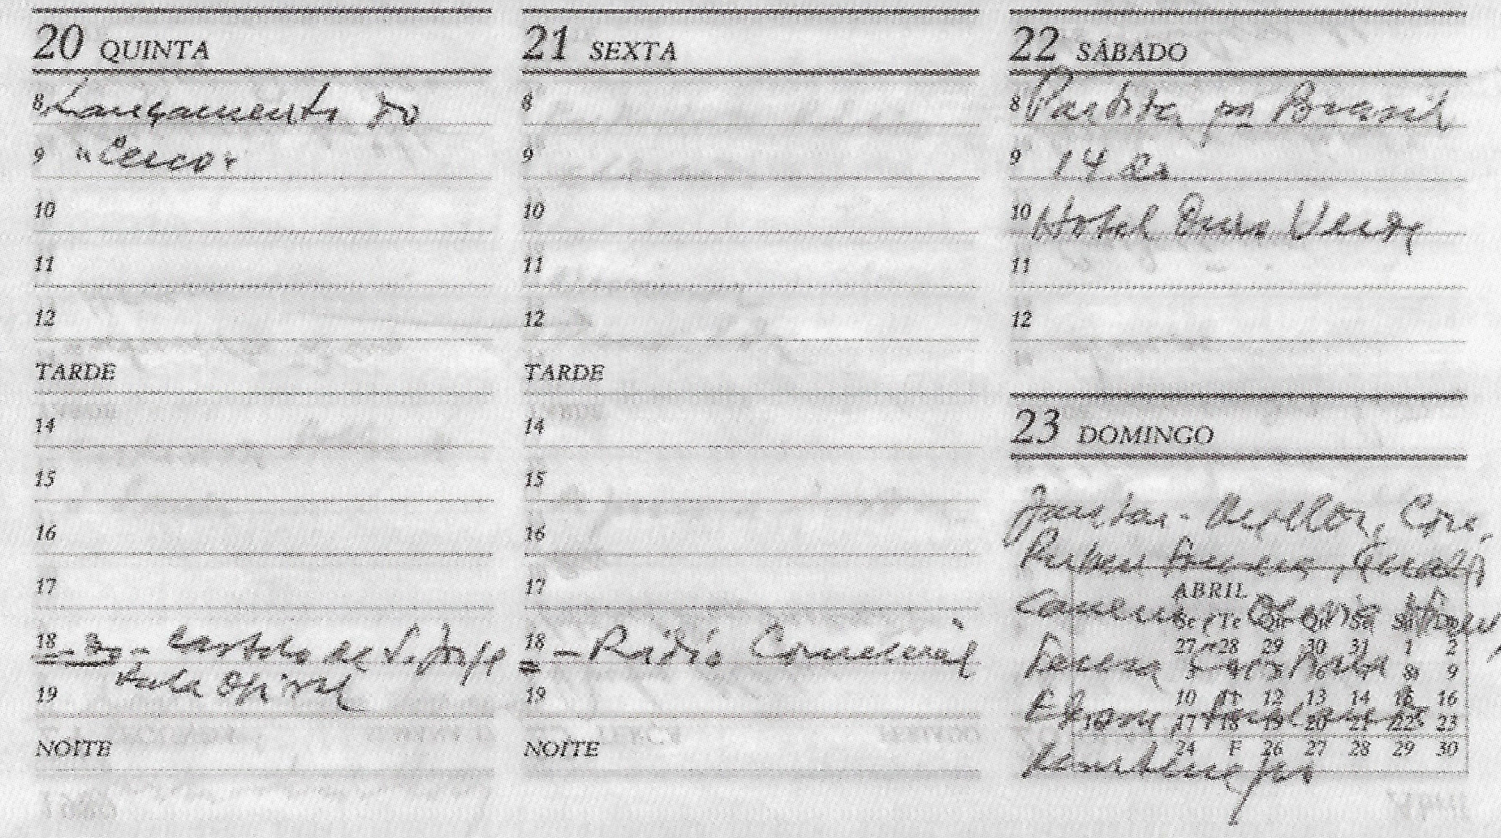 20 QUINTA
8 Lançamento do
9 "Cerco"
10
11
12
TARDE
14
15
16
17
18 - 30 - Castelo de S. Jorge
Sala Ogival
19
NOITE
21 SEXTA
8
9
10
11
12
TARDE
14
15
16
17
18 - Rádio Comercial
19
NOITE
22 SÁBADO
8 Partida pa Brasil
9 14
10 Hotel Ouro Verde
11
12
23 DOMINGO
Jantar -
Rubem Fonseca,
ABRIL
Se Te Qu Qu Sx Sá
27 28 29 30 31 1 2
8 9
10 11 12 13 14 15 16
17 18 19 20 21 22 23
24 F 26 27 28 29 30
Teresa
Montenegro